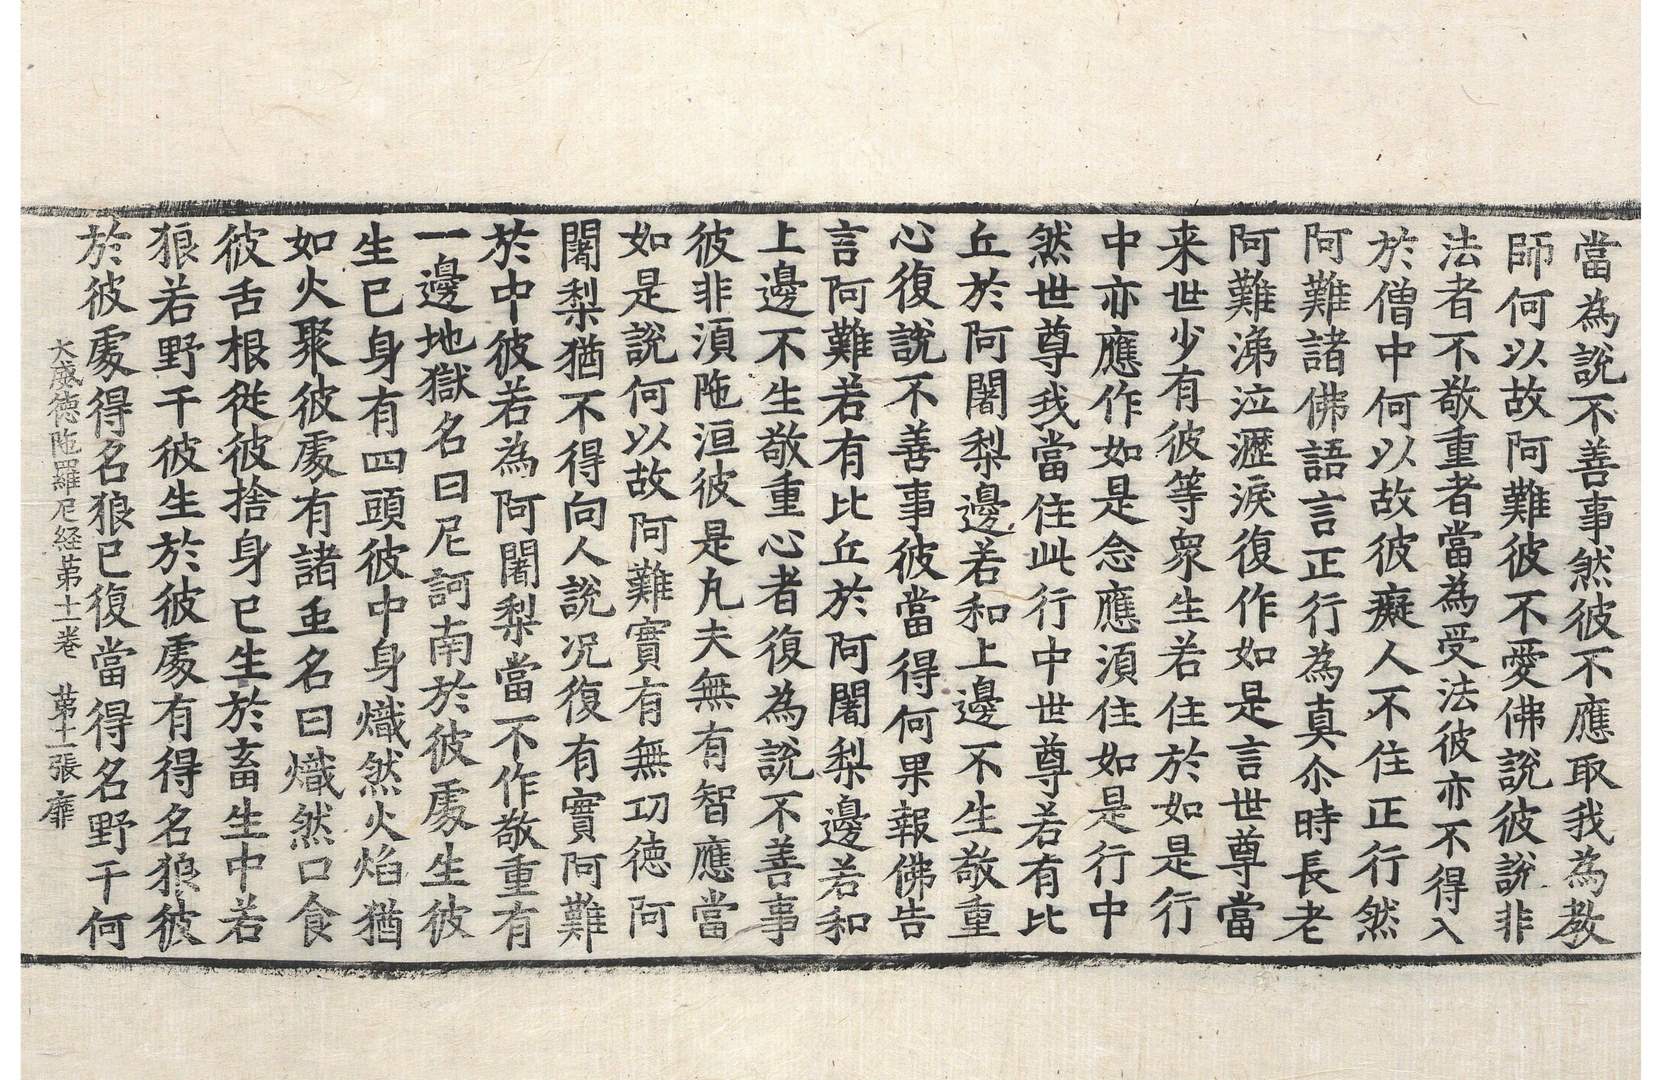 當為說不善事然彼不應取我為教
師何以故阿難彼不愛佛說彼說非
法者不敬重者當為受法彼亦不得入
於僧中何以故彼癡人不住正行然
阿難諸佛語言正行為真尒時長老
阿難涕泣瀝淚復作如是言世尊當
来世少有彼等衆生若住於如是行
中亦應作如是念應湏住如是行中
然世尊我當住此行中世尊若有比
丘於阿闍梨邊若和上邊不生敬重
心復說不善事彼當得何果報佛告
言阿難若有比丘於阿闍梨邊若和
上邊不生敬重心者復為說不善事
彼非湏陁洹彼是凢夫無有智應當
如是說何以故阿難實有無功徳阿
闍梨猶不得向人說况復有實阿難
於中彼若為阿闍梨當不作敬重有
一邊地獄名曰尼訶南於彼處生彼
生已身有四頭彼中身熾然火焰猶
如火聚彼處有諸䖝名曰熾然口食
彼舌根從彼捨身已生於畜生中若
狼若野干彼生於彼處有得名狼彼
於彼處得名狼已復當得名野干何
大威徳陁羅尼経苐十一卷 苐十二張 靡